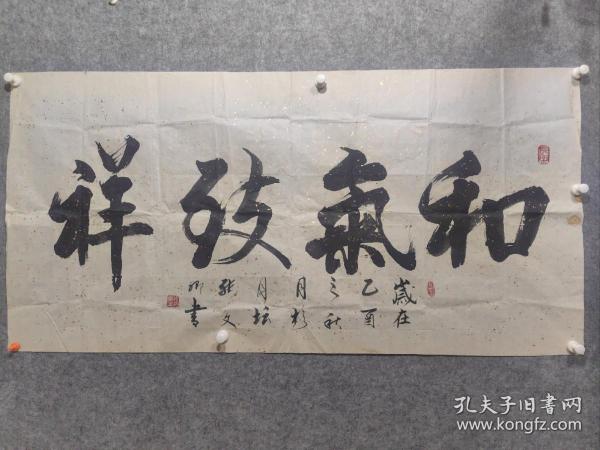 和氣致祥
歲在
乙酉
之秋
月於
月坛
张文
书
孔夫子旧书网
www.kongfz.com